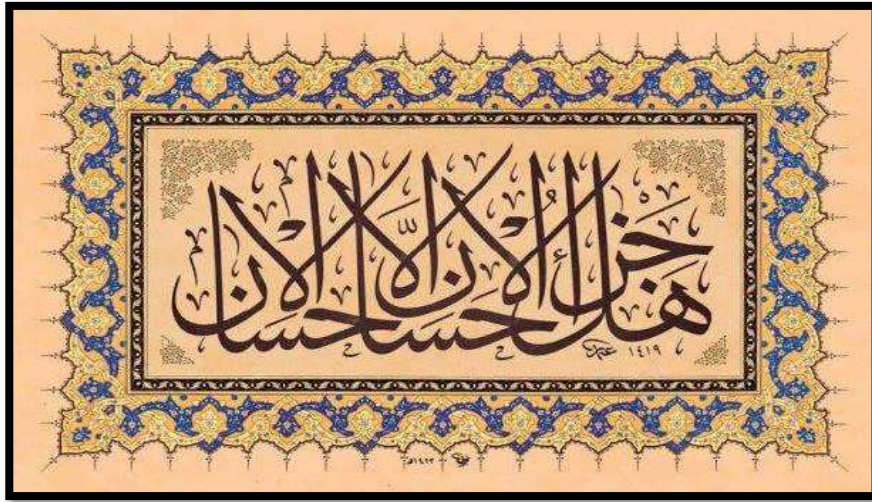 هل جزاء الإحسان إلا الإحسان
١٤١٩